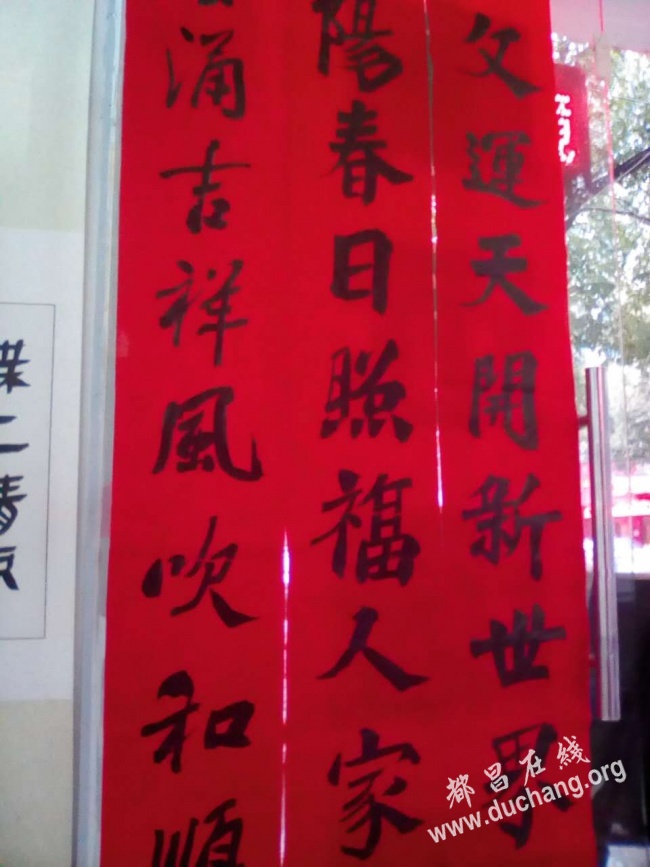 文運天開新世界
陽春日照福人家
涌吉祥風吹和順
都昌在线
www.duchang.org